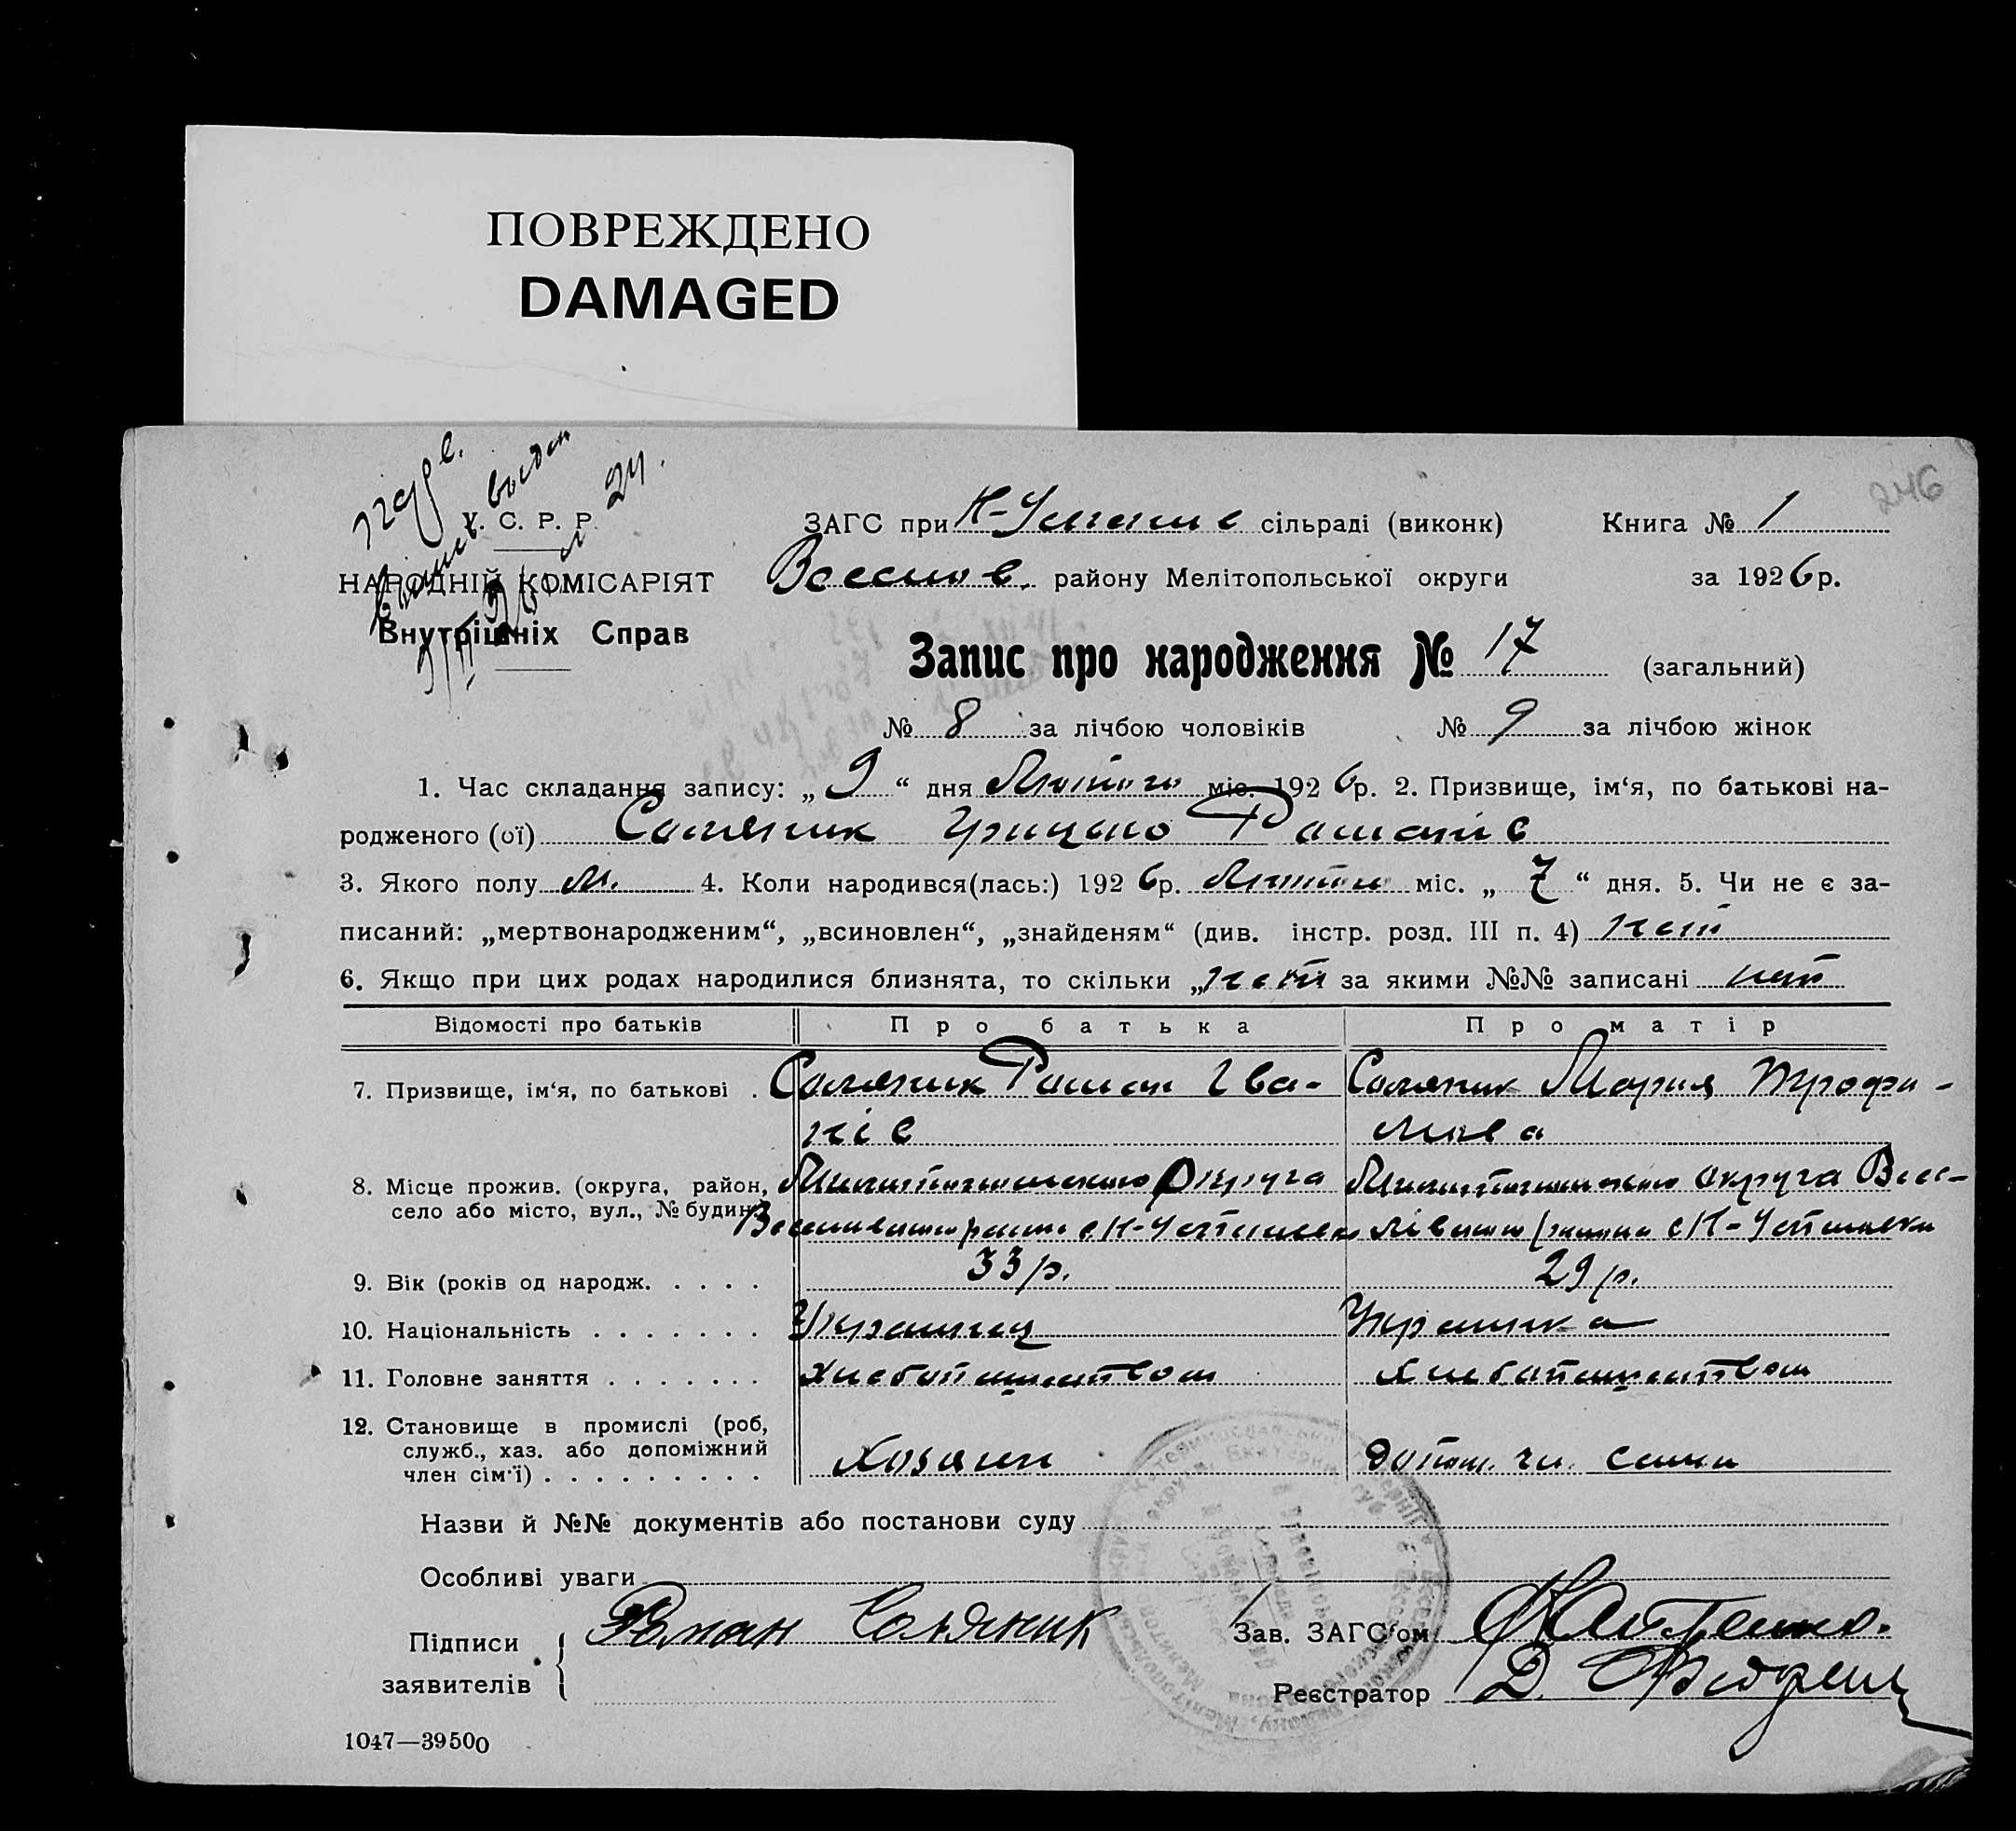 ПОВРЕЖДЕНО
DAMAGED
246
У. С. Р. Р.
НАРОДНІЙ КОМІСАРІЯТ
Внутрішніх Справ
ЗАГС при сільраді (виконк) Книга № 1
району Мелітопольської округи за 1926 р.
Запис про народження № 17 (загальний)
№ 8 за лічбою чоловіків № 9 за лічбою жінок
1. Час складання запису: „ 9 “ дня Лютого міс. 1926 р. 2. Призвище, ім‘я, по батькові на-
родженого (ої) Соляник Грицько Романів
3. Якого полу М. 4. Коли народився(лась:) 1926 р. міс. „ 7 “ дня. 5. Чи не є за-
писаний: „мертвонародженим“, „всиновлен“, „знайденям“ (див. інстр. розд. III п. 4) нет
6. Якщо при цих родах народилися близнята, то скільки „ нет за якими №№ записані нет
Відомості про батьків Про батька Про матір
7. Призвище, ім‘я, по батькові . Соляник Роман Іва- Соляник Мария Трофи-
нів мова
8. Місце прожив. (округа, район, Округа округа
село або місто, вул., № будин.)
9. Вік (років од народж. . . . . 33 р. 29 р.
10. Національність . . . . . . . Украинец Украинка
11. Головне заняття . . . . . . . Хлебопашеством Хлебопашеством
12. Становище в промислі (роб,
служб., хаз. або допоміжний
член сім‘ї) . . . . . . . . . Хозяин допом. чл. семи
Назви й №№ документів або постанови суду
Особливі уваги
Підписи Роман Соляник Зав. ЗАГС‘ом
заявителів Реєстратор Д.
1047—39500